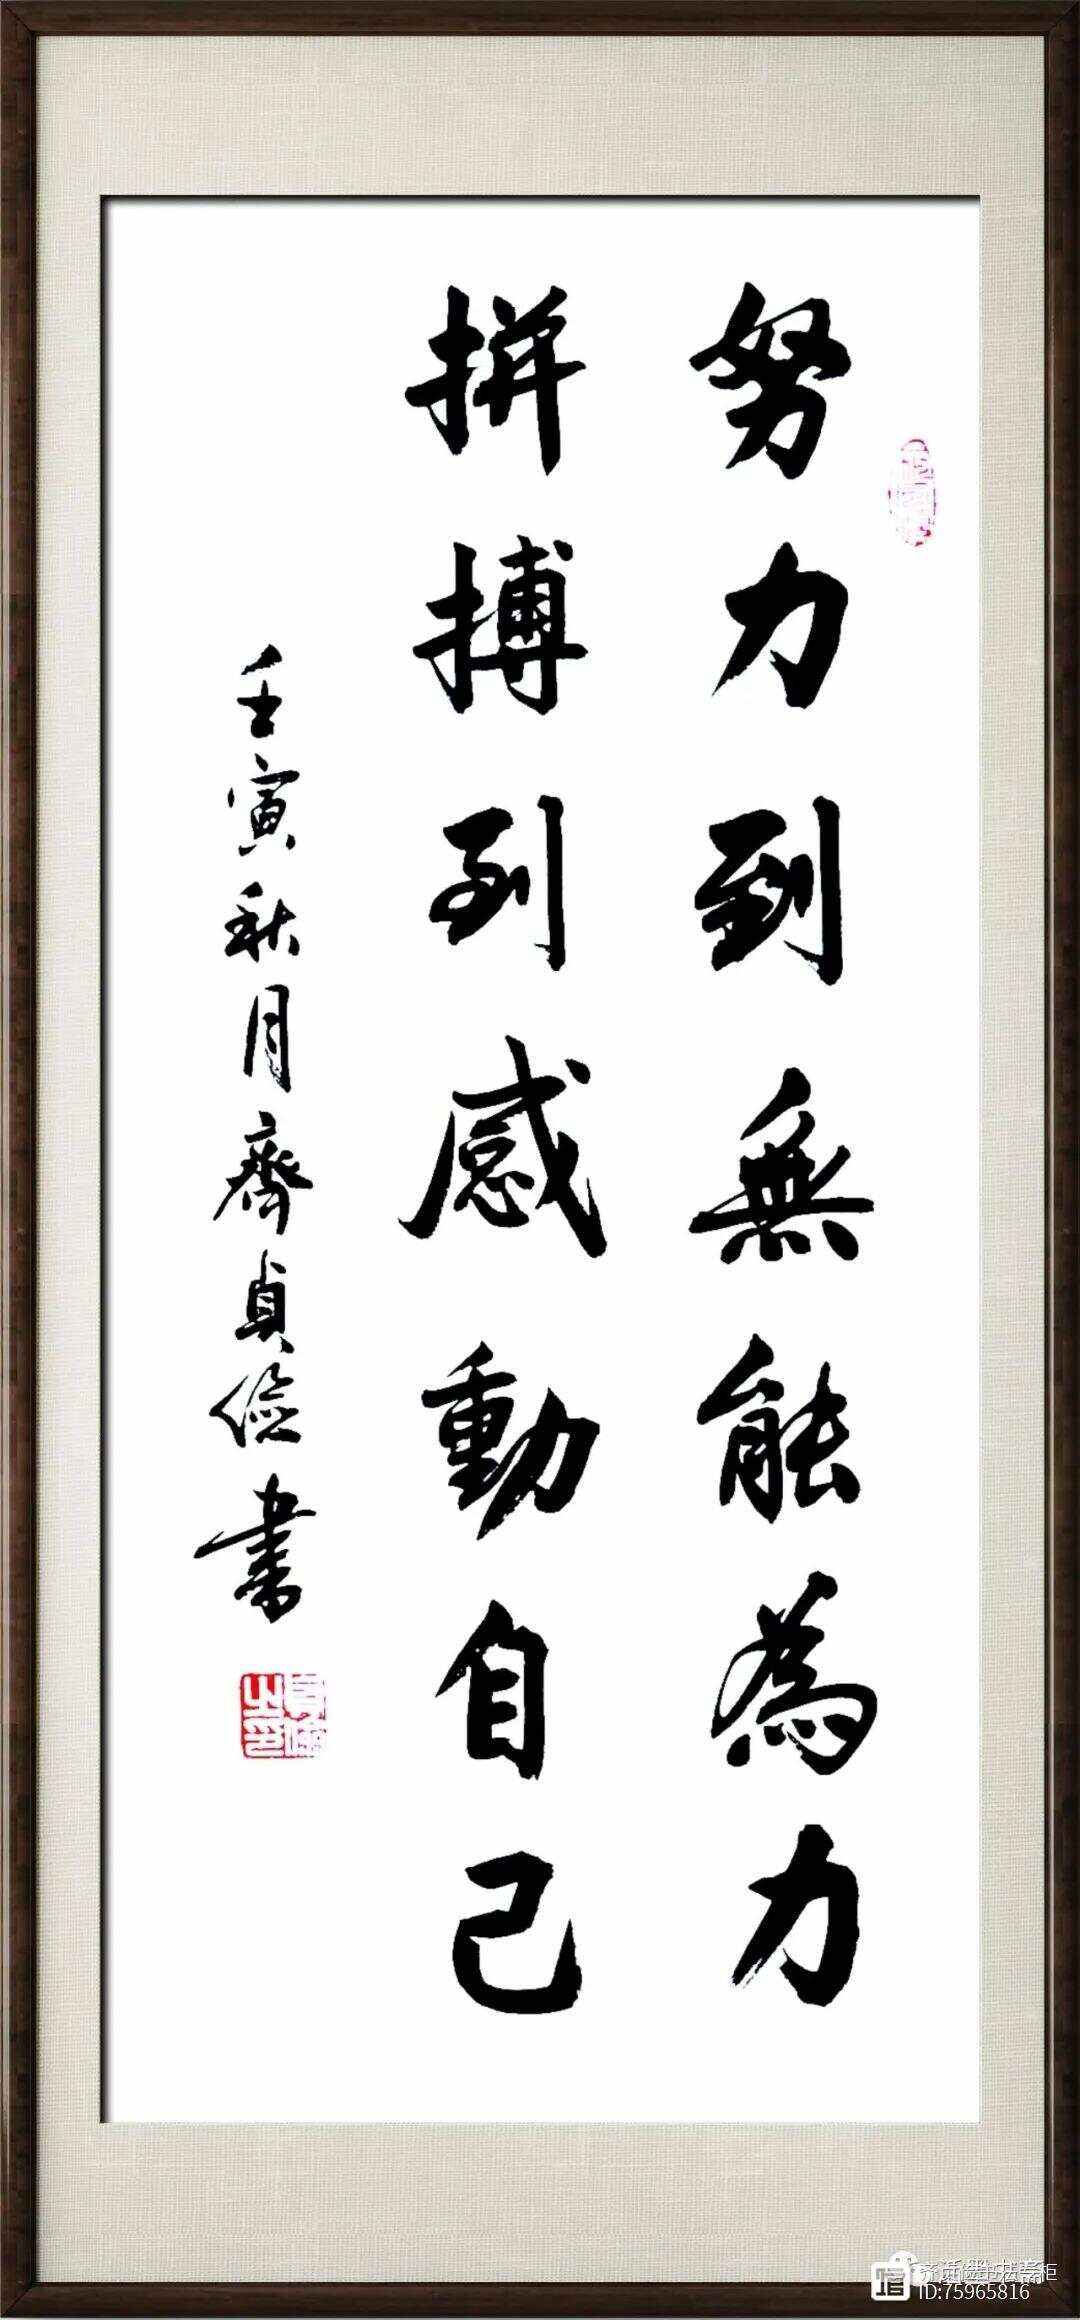 努力到無能為力
拼搏到感動自己
壬寅秋月齊貞儉書
ID:75965816